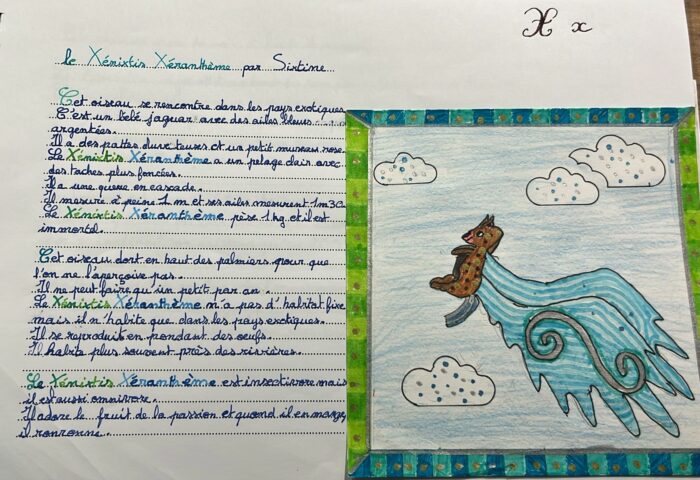 X x
le Xénixtis Xéranthème par Sixtine
Cet oiseau se rencontre dans les pays exotiques.
C'est un bébé jaguar avec des ailes bleues
argentées.
Il a des pattes duveteuses et un petit museau rose.
Le Xénixtis Xéranthème a un pelage clair avec
des taches plus foncées.
Il a une queue en cascade.
Il mesure à peine 1 m et ses ailes mesurent 1m30.
Le Xénixtis Xéranthème pèse 1 kg et il est
immortal.
Cet oiseau dort en haut des palmiers pour que
l'on ne l'aperçoive pas.
Il ne peut faire qu'un petit par an.
Le Xénixtis Xéranthème n'a pas d'habitat fixe
mais il n'habite que dans les pays exotiques.
Il se reproduit en pondant des oeufs.
Il habite plus souvent près des rivières.
Le Xénixtis Xéranthème est insectivore mais
il est aussi omnivore.
Il adore le fruit de la passion et quand il en mange,
il ronronne.